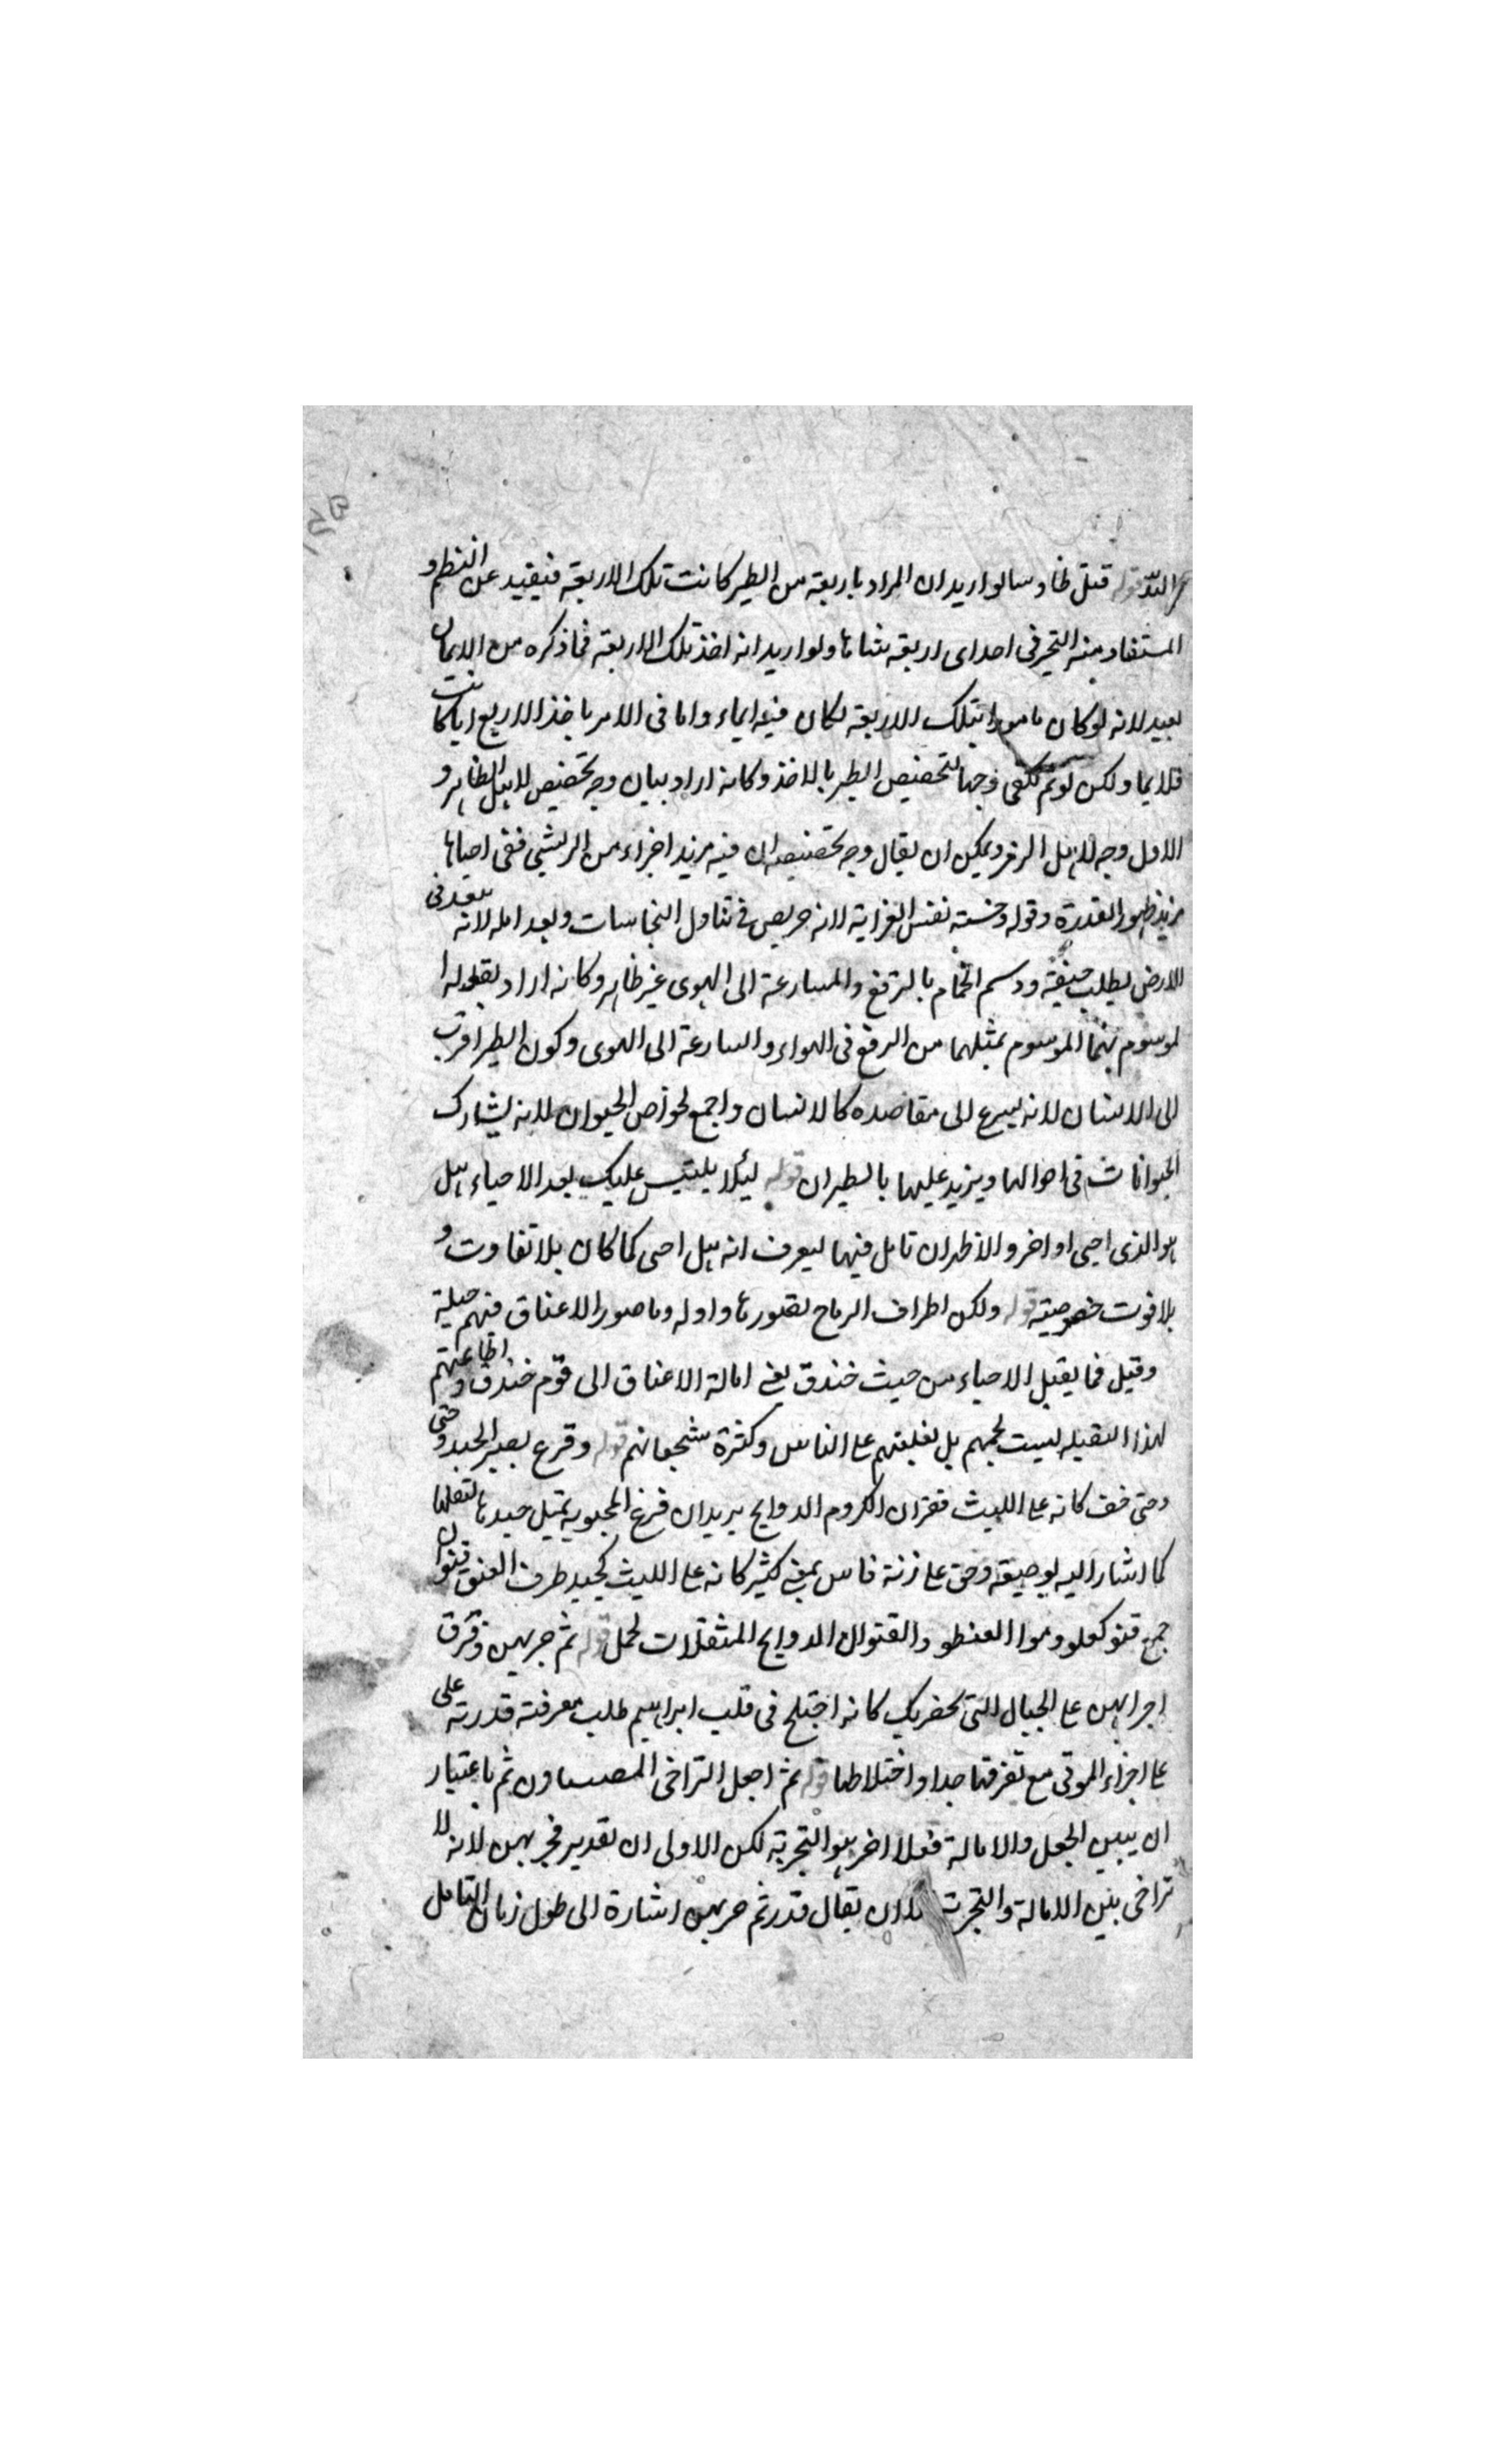 قوله قيل طاوسا لو اريد ان المراد باربعة من الطير كانت تلك الاربعة فيفيد عن النظم و
المستفاد منه التخير في احدى اربعة شاءها ولو اريد انه اخذ تلك الاربعة فما ذكره من الايمان
بعيد لانه لو كان مامورا بتلك الاربعة لكان فيه ايماء واما في الامر باخذ الاربع ايا كانت
فلا ايما ولكن لو تم لكفى وجها لتخصيص الطير بالاخذ وكانه اراد بيان وجه تخصيص للابل الظاهر و
الاول وجه ويمكن ان يقال وجه تخصيصه ان فيه مزيد اجزاء من الريش ففي احياءها
مزيد ظهور القدرة وقوله وخسة نفس الغراب لانه حريص في تناول النجاسات وبعد امله لانه يبعد في
الارض يطلب جيفة ووسم الحمام بالترفع والمسارعة الى الهوى غير ظاهر وكانه اراد بقوله ا
لموسوم بهما الموسوم بمثلهما من الرفع في الهواء والسارعة الى الهوى وكون الطير اقرب
الى الانسان لانه يسرع الى مقاصده كالانسان واجمع لخواص الحيوان لانه يشارك
الحيوانات في احوالها ويزيد عليها بالطيران قوله لئلا يلتبس عليك بعد الاحياء هل
هو الذي احيي او اخر والاظهر ان تامل فيها ليعرف انه هل احيي كما كان بلا تفاوت و
بلا فوت خصوصية قوله ولكن اطراف الرماح تصورها واوله وما صور الاعناق فيهم جبلة
وقيل فما يقبل الاحياء من حيث خندق يعني امالة الاعناق الى قوم خندق واطاعتهم
لهذا القبيله ليست لحبهم بل لغلبتهم على الناس وكثرة شجعانهم قوله وفرع يصير الجيد وحتى
وحتى خف كانه على الليث قنوان الكروم الدوالح يريد ان فرع المحبوبة تميل جيدها لثقلها
كما اشار اليه بوصفه وحق على زنة فاس بمعنى كثير كانه على الليث كجيد طرف العنق قنوان
جمع قنو كعلو وهوا العنطو والقنوان الدوالح المثقلات لحمل قوله ثم جزهن وفرق
اجزاهن على الجبال التي بحضرتك كانه اختلج في قلب ابراهيم طلب معرفة قدرته على
على اجزاء الموتى مع تفرقها جدا واختلاطها قوله ثم اجعل التراخي ثم باعتبار
ان بين الجعل والامالة فعلا اخر هو التجزية لكن الاولى ان تقدير فجزهن لانه لا
تراخي بين الامالة والتجزية الا ان يقال قدر ثم جزهن اشارة الى طول زمان التامل